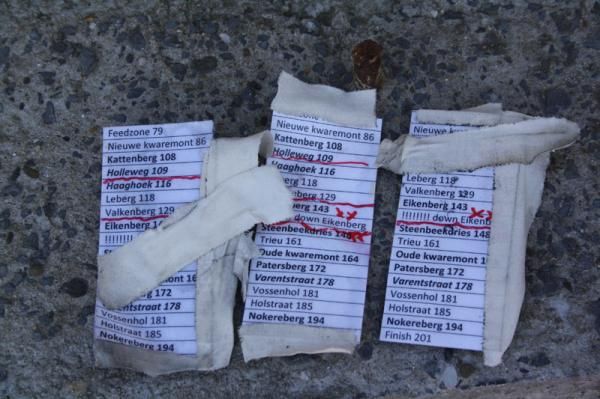 Feedzone 79
Nieuwe kwaremont 86
Kattenberg 108
Holleweg 109
Haaghoek 116
Leberg 118
Valkenberg 129
Eikenberg
!!!!!!!!
Steenbeekdries
Patersberg 172
Varentstraat 178
Vossenhol 181
Holstraat 185
Nokereberg 194
Nieuwe kwaremont 86
Kattenberg 108
Holleweg 109
Haaghoek 116
118
129
143 xx
down Eikenberg
Steenbeekdries 148
Trieu 161
Oude kwaremont 164
Patersberg 172
Varentstraat 178
Vossenhol 181
Holstraat 185
Nokereberg 194
Nieuwe
Leberg 118
Valkenberg 129
Eikenberg 143 xx
!!!!!!!! down Eikenb
Steenbeekdries 148
Trieu 161
Oude kwaremont
Patersberg 172
Varentstraat 178
Vossenhol 181
Holstraat 185
Nokereberg 194
Finish 201